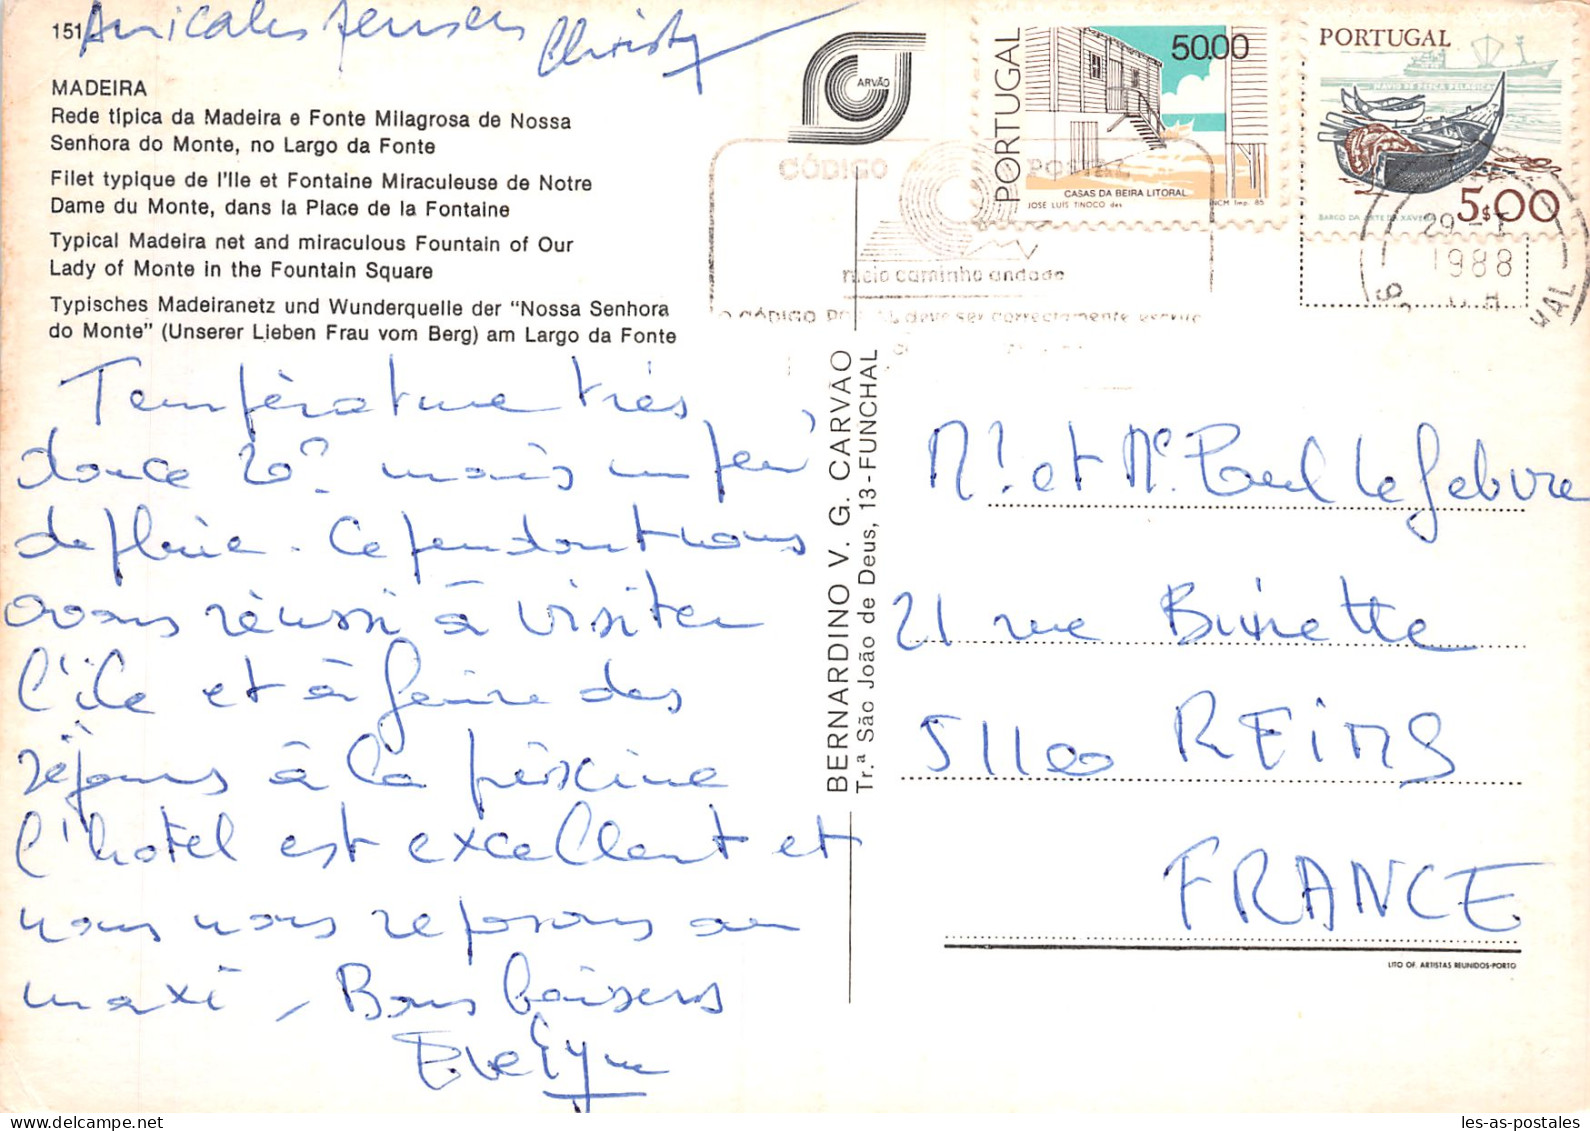 151
Amicales pensées
Christy
MADEIRA
Rede típica da Madeira e Fonte Milagrosa de Nossa
Senhora do Monte, no Largo da Fonte
Filet typique de l'Ile et Fontaine Miraculeuse de Notre
Dame du Monte, dans la Place de la Fontaine
Typical Madeira net and miraculous Fountain of Our
Lady of Monte in the Fountain Square
Typisches Madeiranetz und Wunderquelle der "Nossa Senhora
do Monte" (Unserer Lieben Frau vom Berg) am Largo da Fonte
Température très
douce 20° mais un peu
de pluie. Cependant nous
avons réussi à visiter
l'île et à faire des
séjours à la piscine
l'hotel est excellent et
nous nous reposons au
maxi, Bons baisers
Evelyne
ARVÃO
CÓDIGO POSTAL
meio caminho andado
O CÓDIGO POSTAL deve ser correctamente
PORTUGAL
50.00
CASAS DA BEIRA LITORAL
JOSÉ LUIS TINOCO des
INCM Imp. 85
PORTUGAL
NAVIO DE PESCA PELÁGICA
5$00
BARCO DA ARTE DA XÁVEGA
29 - 1
1988
BERNARDINO V. G. CARVÃO
Tr.ª São João de Deus, 13-FUNCHAL
Mr. et Me Paul Lefebvre
21 rue Buirette
51100 REIMS
FRANCE
LITO OF. ARTISTAS REUNIDOS-PORTO
les-as-postales